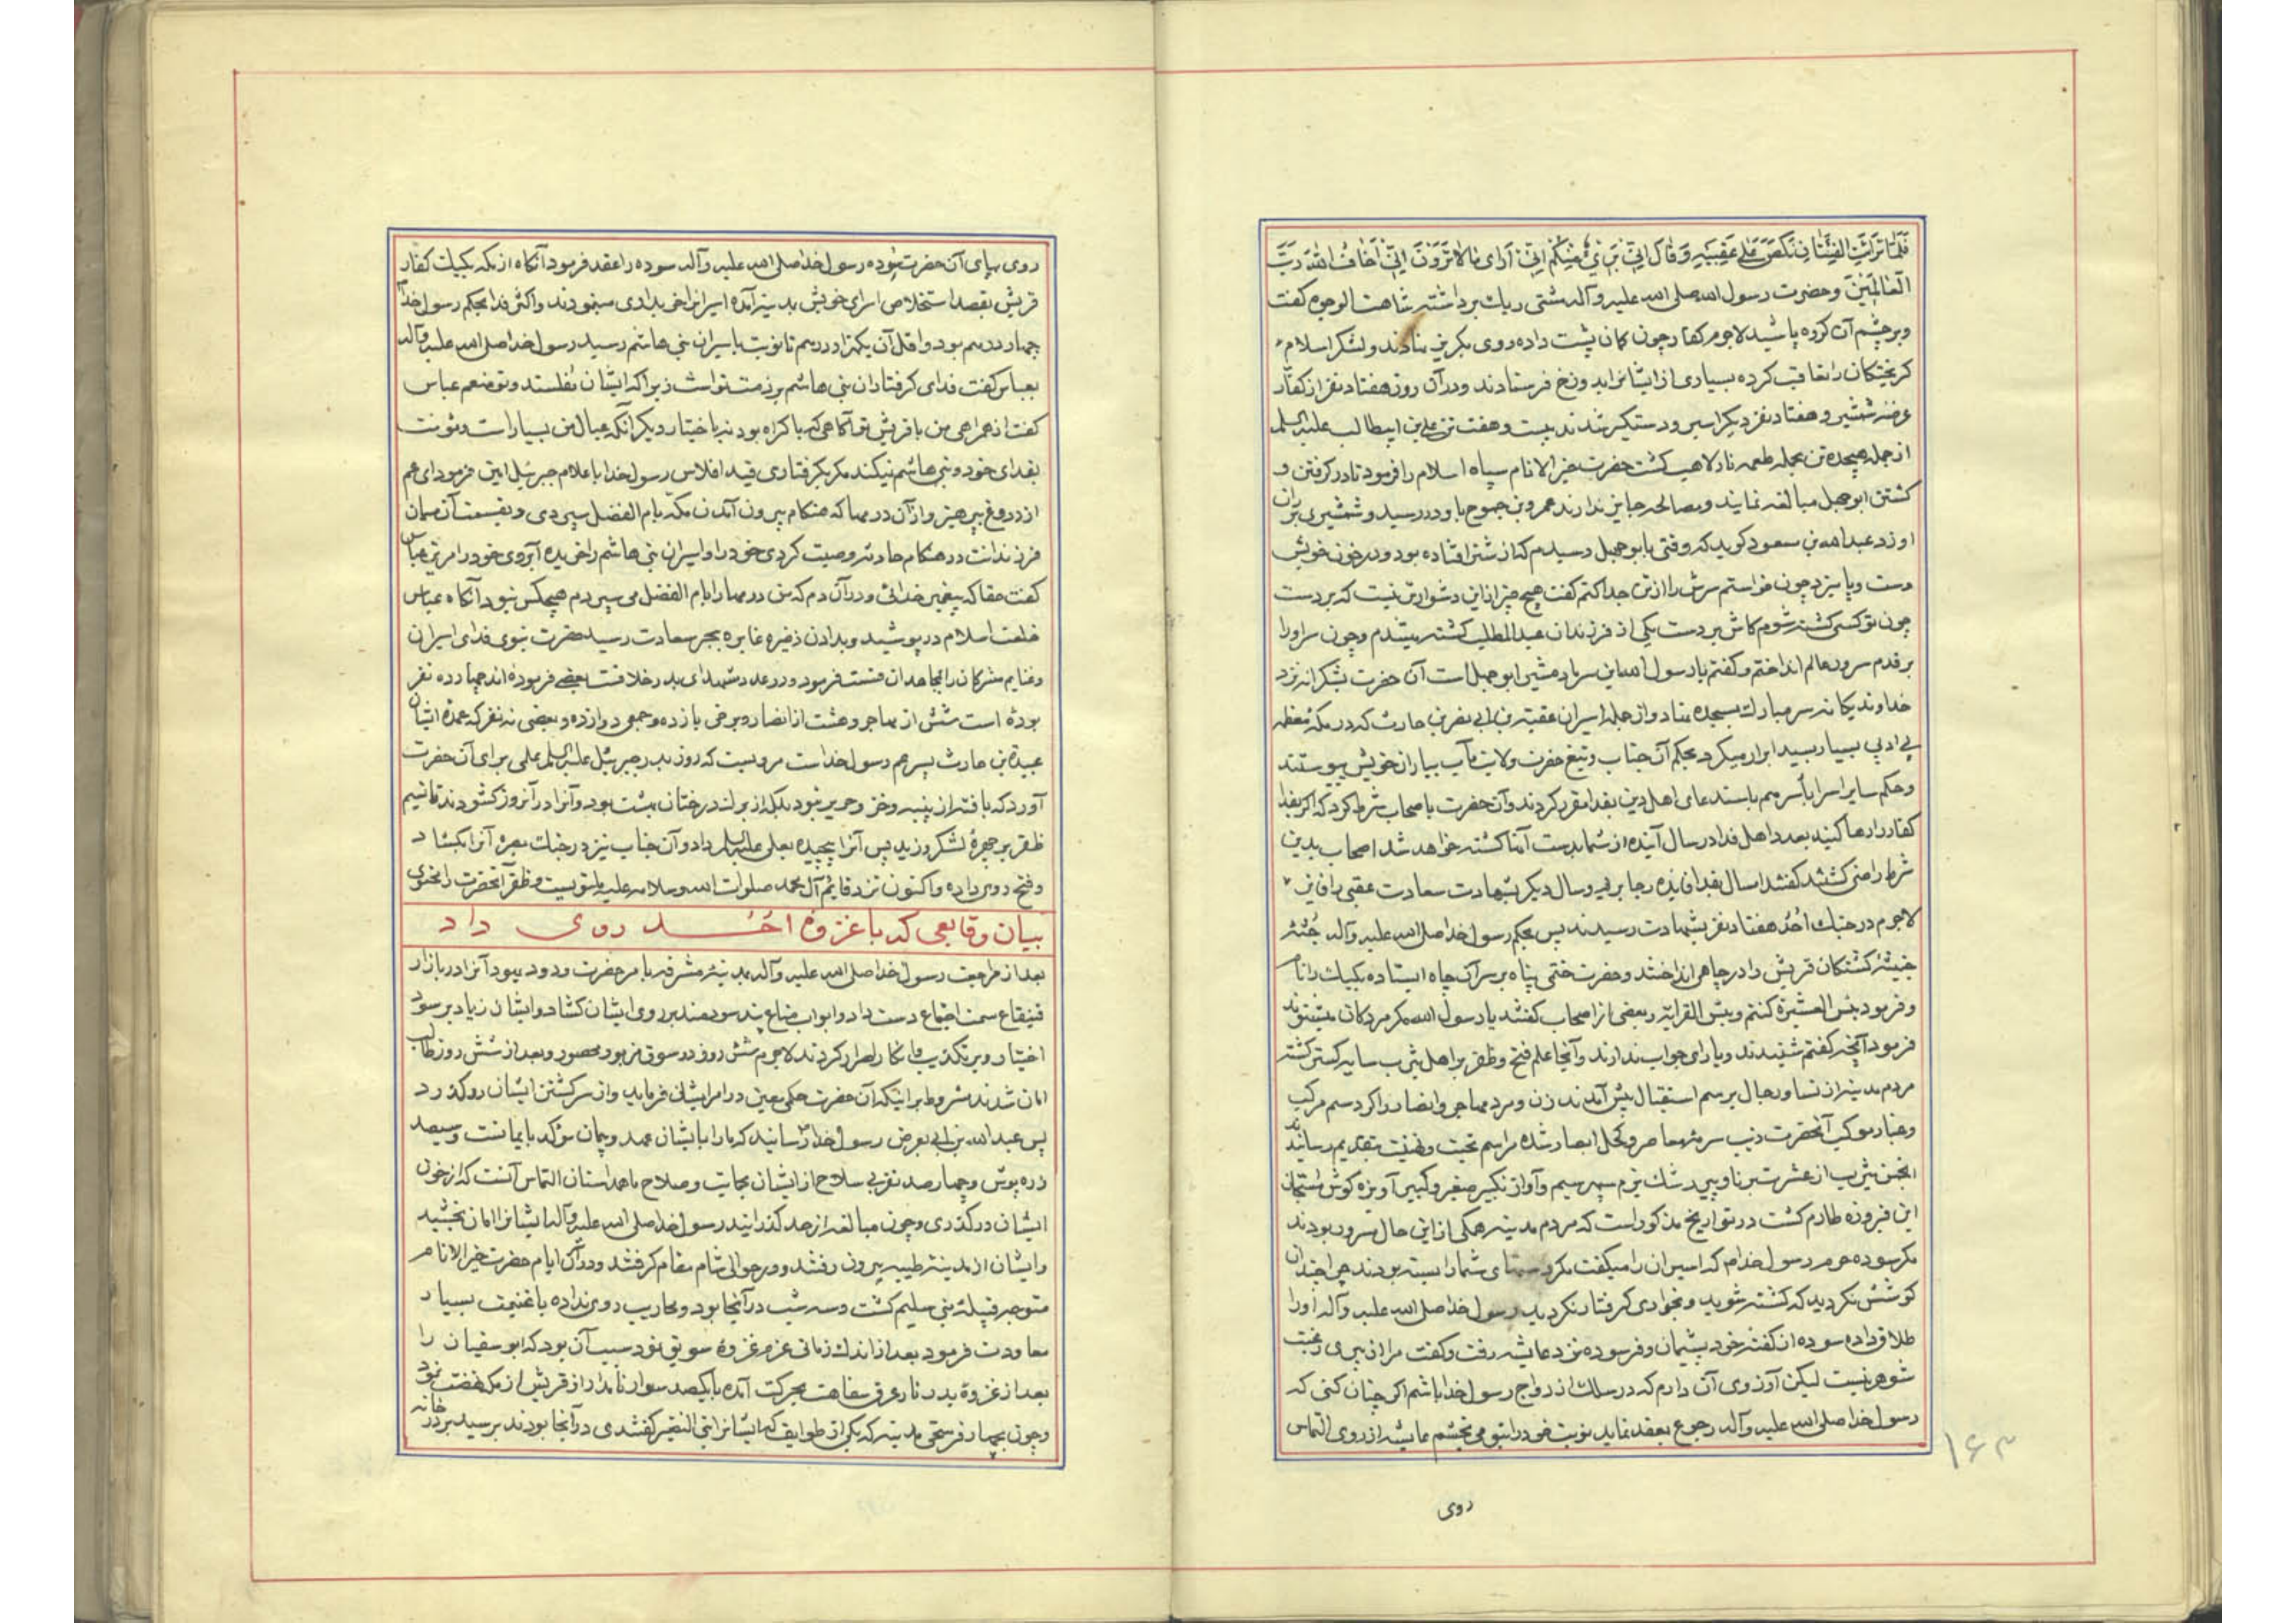 فَلَمَّا تَرَائَتِ الْفِئَتَانِ نَكَصَ عَلَى عَقِبَيْهِ وَقَالَ اِنِّي بَرِيءٌ مِنْكُمْ اِنِّي اَرَى مَا لَا تَرَوْنَ اِنِّي اَخَافُ اللهَ رَبَّ
الْعَالَمِينَ وحضرت رسول الله صلی الله علیه وآله مشتی ریک برداشته شاهت الوجوه کفت
وبرچشم آن کروه پاشید لاجرم کفار چون کمان پشت داده روی بکریز نهادند ولشکر اسلام
کریختکان را تعاقب کرده بسیاری از ایشانرا بدوزخ فرستادند ودر آن روز هفتاد نفر از کفار
عرضه شمشیر وهفتاد نفر دیکر اسیر ودستکیر شدند بیست وهفت تن علی بن ابیطالب علیه السلم
از جمله هیجده تن بحمله طعمه نار لاهب کشت حضرت خیر الانام سپاه اسلام را فرمود تا در کرفتن و
کشتن ابوجهل مبالغه نمایند ومصالحه جایز ندارند عمرو بن جموح باو در رسید و شمشیری بران
او زد عبدالله بن سعود کوید که وقتی بابوجهل رسیدم که از شتر افتاده بود ودر خون خویش
دست وپا میزد چون خواستم سرش را از تن جدا کنم کفت هیچ چیز از این دشوارتر نیست که بر دست
چون تو کسی کشته شوم کاش بر دست یکی از فرزندان عبد المطلب کشته میشدم وچون سر او را
بر قدم سرور عالم انداختم وکفتم یا رسول الله این سر بادمشین ابوجهل است آن حضرت بشکرانه نزد
خداوند یکانه سر مبارک بسجده نهاد واز جمله اسیران عقبة بن ابی نضر بن حارث که در مکه معظمه
بی ادبی بسیار بسید ابرار میکرد بحکم آن جناب وتیغ حضرت ولایت مآب بیاران خویش پیوستند
وحکم سایر اسرا بأسرهم باستدعای اهل دین بفدا مقرر کردند وآن حضرت با اصحاب شرط کرد که اکر بفدا
کفار را رها کنید بعدد اهل فدا در سال آینده از شما بدست آنها کشته خواهد شد اصحاب بدین
شرط راضی کشتند کفتند امسال بفدا فایده رجا بریم وسال دیکر بشهادت سعادت عقبی یافتن
لاجرم در جنک اُحُد هفتاد نفر بشهادت رسیدند پس بحکم رسول خدا صلی الله علیه وآله جُثّه
خبیثه کشتکان قریش را در چاهی انداختند وحضرت ختمی پناه بر سر آن چاه ایستاده یکیک را نام
وفرمود بئس العشیرة کنتم وبئس القرابة وبعضی از اصحاب کفتند یا رسول الله مکر مردکان میشنوند
فرمود آنچه کفتم شنیدند ویارای جواب ندارند وآنجا علم فتح وظفر بر اهل یثرب سایه کستر کشته
مردم مدینه از نسا ورجال برسم استقبال پیش آمدند زن ومرد مهاجر وانصار واکرد سم مرکب
وغبار موکب آنحضرت زیب سرمه معاصر وکحل ابصار شده مراسم تحیت وتهنیت بتقدیم رسانیدند
انجمن یثرب از عشرت برنا وپیر رشک بزم سپهر سیم وآواز تکبیر صغیر وکبیر آویزه کوش
این فیروزه طارم کشت در تواریخ مذکور است که مردم مدینه همکی از این حال مسرور بودند
مکر سوده حرم رسول خدا م که اسیران را میکفت مکر دستهای شما را بسته بودند چرا چندان
کوشش نکردید که کشته شوید وبخواری کرفتار نکردید رسول خدا صلی الله علیه وآله او را
طلاق داده سوده از کفته خود پشیمان وفرسوده نزد عایشه رفت وکفت مرا از پیری رغبت
شوهر نیست لیکن آرزوی آن دارم که در سلک ازدواج رسول خدا باشم اکر چنان کنی که
رسول خدا صلی الله علیه وآله رجوع بعقد نماید نوبت خود را بتو می بخشم عایشه از روی التماس
روی
۱۶۳
روی بپای آن حضرت سوده رسول خدا صلی الله علیه وآله سوده را عقد فرمود آنکاه از مکه یکیک کفار
قریش بقصد استخلاص اسرای خویش بمدینه آمده اسیرانرا خریداری مینمودند واکثر فدا بحکم رسول خدا
چهار درهم بود واقل آن یکهزار درهم تا نوبت باسیران بنی هاشم رسید رسول خدا صلی الله علیه وآله
بعباس کفت فدای کرفتاران بنی هاشم بر ذمت تو است زیرا که ایشان مفلسند وتو منعم عباس
کفت از همراهی من با قریش تو آکاهی که باکراه بود نه باختیار دیکر آنکه عیال من بسیار است ومؤنت
بفدای خود وبنی هاشم نیکند مکر بکرفتاری قید افلاس رسول خدا باعلام جبرئیل امین فرمود ای عم
از دروغ بپرهیز واز آن درمها که هنکام بیرون آمدن مکه بام الفضل سپردی وبقسمت آن میان
فرزندانت در هنکام حادثه وصیت کردی خود را واسیران بنی هاشم را خریده آبروی خود را مریز عباس
کفت حقا که پیغمبر خدائی ودر آن دم که من درمها را بام الفضل می سپردم هیچکس نبود آنکاه عباس
خلعت اسلام در پوشید وبدادن ذخیره غابره ببحر سعادت رسید حضرت نبوی فدای اسیران
وغنایم مشرکان را بمجاهدان قسمت فرمود ودر عدد شهدای بدر خلافست بعضی فرموده اند چهارده نفر
بوده است شش از مهاجر وهشت از انصار وبرخی یازده وجمعی دوازده وبعضی نه نفر که عمده ایشان
عبیدة بن حارث پسر عم رسول خداست مرویست که روز بدر جبرئیل علیه السلم علمی برای آن حضرت
آورد که بافته از پنبه وخز وحریر نبود بلکه از برک درختان بهشت بود وآنرا در آنروز کشودند تا نسیم
ظفر بر چهره لشکر وزید پس آنرا پیچیده بعلی علیه السلم داد وآن جناب نیز در جنک بصره آنرا بکشاد
وفتح روی داده واکنون نزد قایم آل محمد صلوات الله وسلامه علیه
بیان وقایعی که با غزوه اُحُد روی داد
بعد از مراجعت رسول خدا صلی الله علیه وآله بمدینه مشرفه بامر حضرت ودود یهود آنرا در بازار
قینقاع سمت اجتماع دست داد وابواب متاع پند سودمند بر روی ایشان کشاد وایشان زیاد بر سود
اختیار وبر تکذیب وانکار اصرار کردند لاجرم شش روز در سوق مزبور محصور وبعد از شش روز طالب
امان شدند مشروط بر اینکه آن حضرت حکمی معین در امر ایشان فرماید واز سر کشتن ایشان در کذرد
پس عبدالله بن ابی بعرض رسول خدا رسانید که ما را با ایشان عهد وپیمان مؤکد بایمانست وسیصد
زره پوش وچهارصد نفر بی سلاح از ایشان بحمایت وصلاح ما همداستان التماس آنست که از خون
ایشان در کذری وچون مبالغه از حد کذرانید رسول خدا صلی الله علیه وآله ایشانرا امان بخشید
وایشان از مدینه طیبه بیرون رفتند ودر حوالی شام مقام کرفتند ودر آن ایام حضرت خیر الانام
متوجه قبیله بنی سلیم کشت وسه شب در آنجا بود ومحاربت روی نداده با غنیمت بسیار
معاودت فرمود بعد از اندک زمانی عزم غزوه سویق نمود سبب آن بود که ابوسفیان را
بعد از غزوه بدر نار عرق سفاهت بحرکت آمده با یکصد سوار نامدار از قریش از مکه نهضت نمود
وچون بچهار فرسخی مدینه که یکی از طوایف که ایشانرا بنی النضیر کفتندی در آنجا بودند برسید بر در خانه